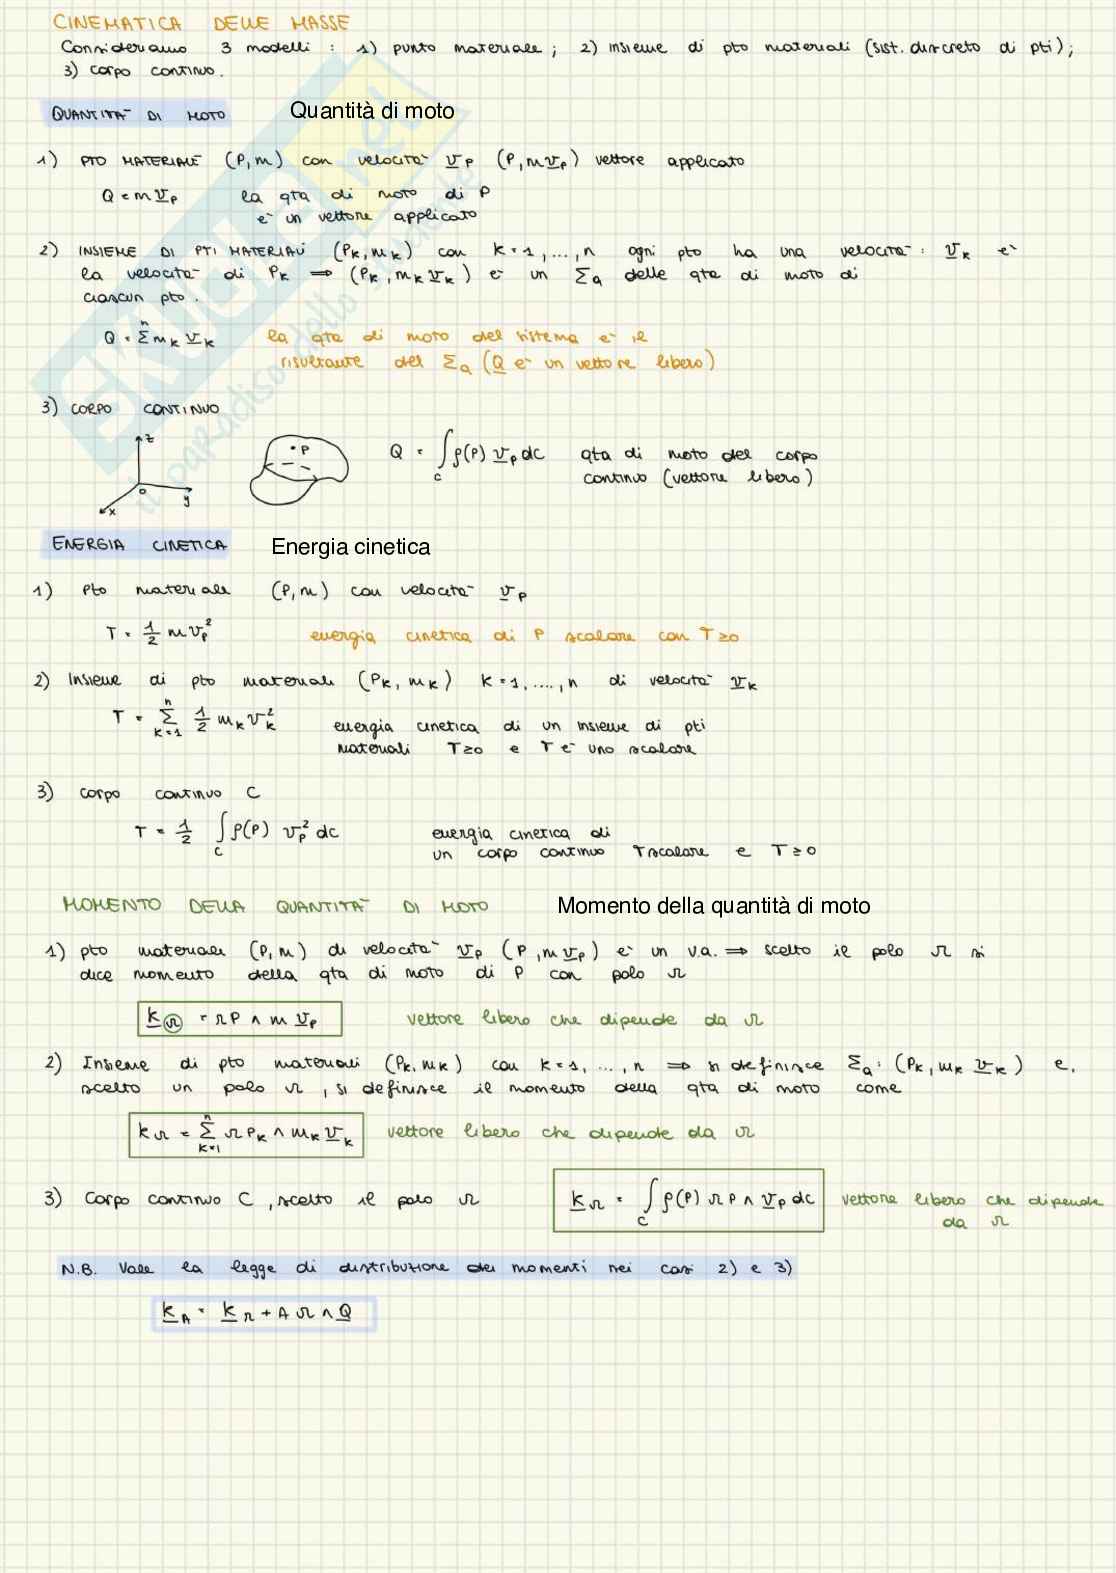 CINEMATICA DELLE MASSE
Consideriamo 3 modelli : 1) punto materiale ; 2) insieme di pto materiali (sist. discreto di pti) ;
3) corpo continuo .
QUANTITÀ DI MOTO Quantità di moto
1) PTO MATERIALE (P, m) con velocità v̲_P (P, m v̲_P) vettore applicato
Q = m v̲_P la qta di moto di P
è un vettore applicato
2) INSIEME DI PTI MATERIALI (P_K, m_K) con K = 1, ..., n ogni pto ha una velocità : v̲_K è
la velocità di P_K ⟹ (P_K, m_K v̲_K) è un Σ_a delle qta di moto di
ciascun pto .
Q = Σ^n m_K v̲_K la qta di moto del sistema è il
risultante del Σ_a (Q̲ è un vettore libero)
3) CORPO CONTINUO
z
P
Q = ∫_C ρ(P) v̲_P dC qta di moto del corpo
continuo (vettore libero)
o
y
x
ENERGIA CINETICA Energia cinetica
1) Pto materiale (P, m) con velocità v̲_P
T = 1/2 m v_P² energia cinetica di P scalare con T ≥ 0
2) Insieme di pto materiali (P_K, m_K) K = 1, ...., n di velocità v̲_K
T = Σ_{K=1}^n 1/2 m_K v_K² energia cinetica di un insieme di pti
materiali T ≥ 0 e T è uno scalare
3) Corpo continuo C
T = 1/2 ∫_C ρ(P) v_P² dC energia cinetica di
un corpo continuo T scalare e T ≥ 0
MOMENTO DELLA QUANTITÀ DI MOTO Momento della quantità di moto
1) pto materiale (P, m) di velocità v̲_P (P, m v̲_P) è un v.a. ⟹ scelto il polo Ω si
dice momento della qta di moto di P con polo Ω
k̲_Ω = ΩP ∧ m v̲_P vettore libero che dipende da Ω
2) Insieme di pto materiali (P_K, m_K) con K = 1, ..., n ⟹ si definisce Σ_a : (P_K, m_K v̲_K) e,
scelto un polo Ω , si definisce il momento della qta di moto come
k_Ω = Σ_{K=1}^n ΩP_K ∧ m_K v̲_K vettore libero che dipende da Ω
3) Corpo continuo C , scelto il polo Ω k̲_Ω = ∫_C ρ(P) ΩP ∧ v̲_P dC vettore libero che dipende
da Ω
N.B. Vale la legge di distribuzione dei momenti nei casi 2) e 3)
k̲_A = k̲_Ω + AΩ ∧ Q̲